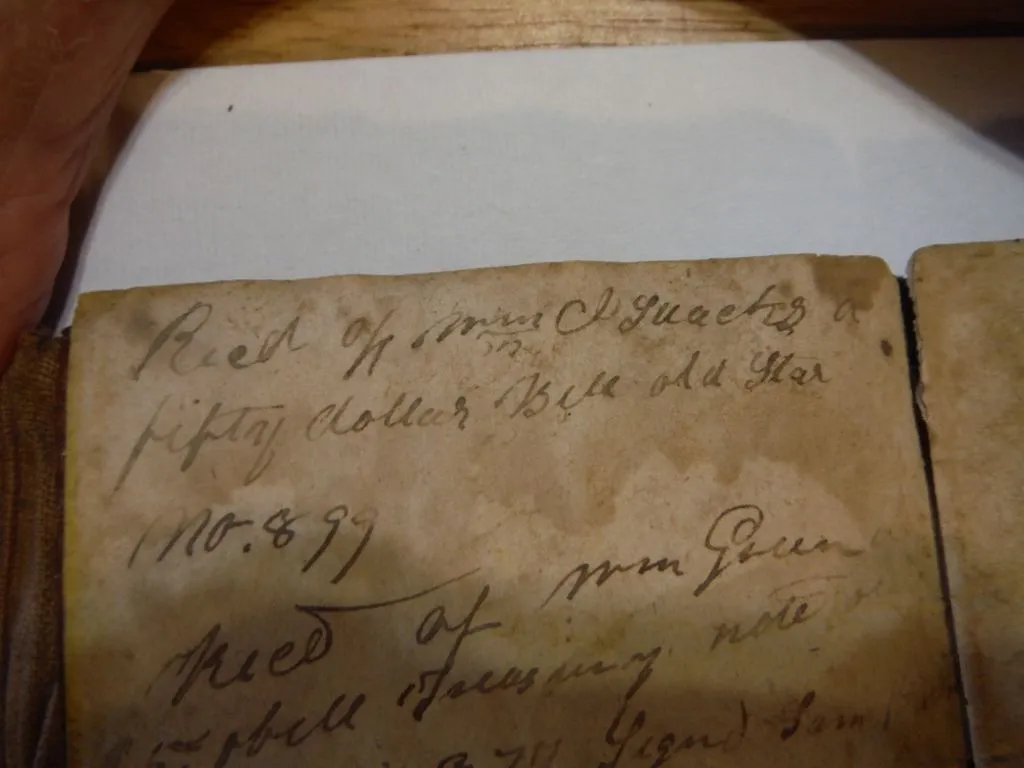 Recd of Wm
fifty dollar Bill old Star
No. 899
Recd of Wm Green
Treasury note
Signd